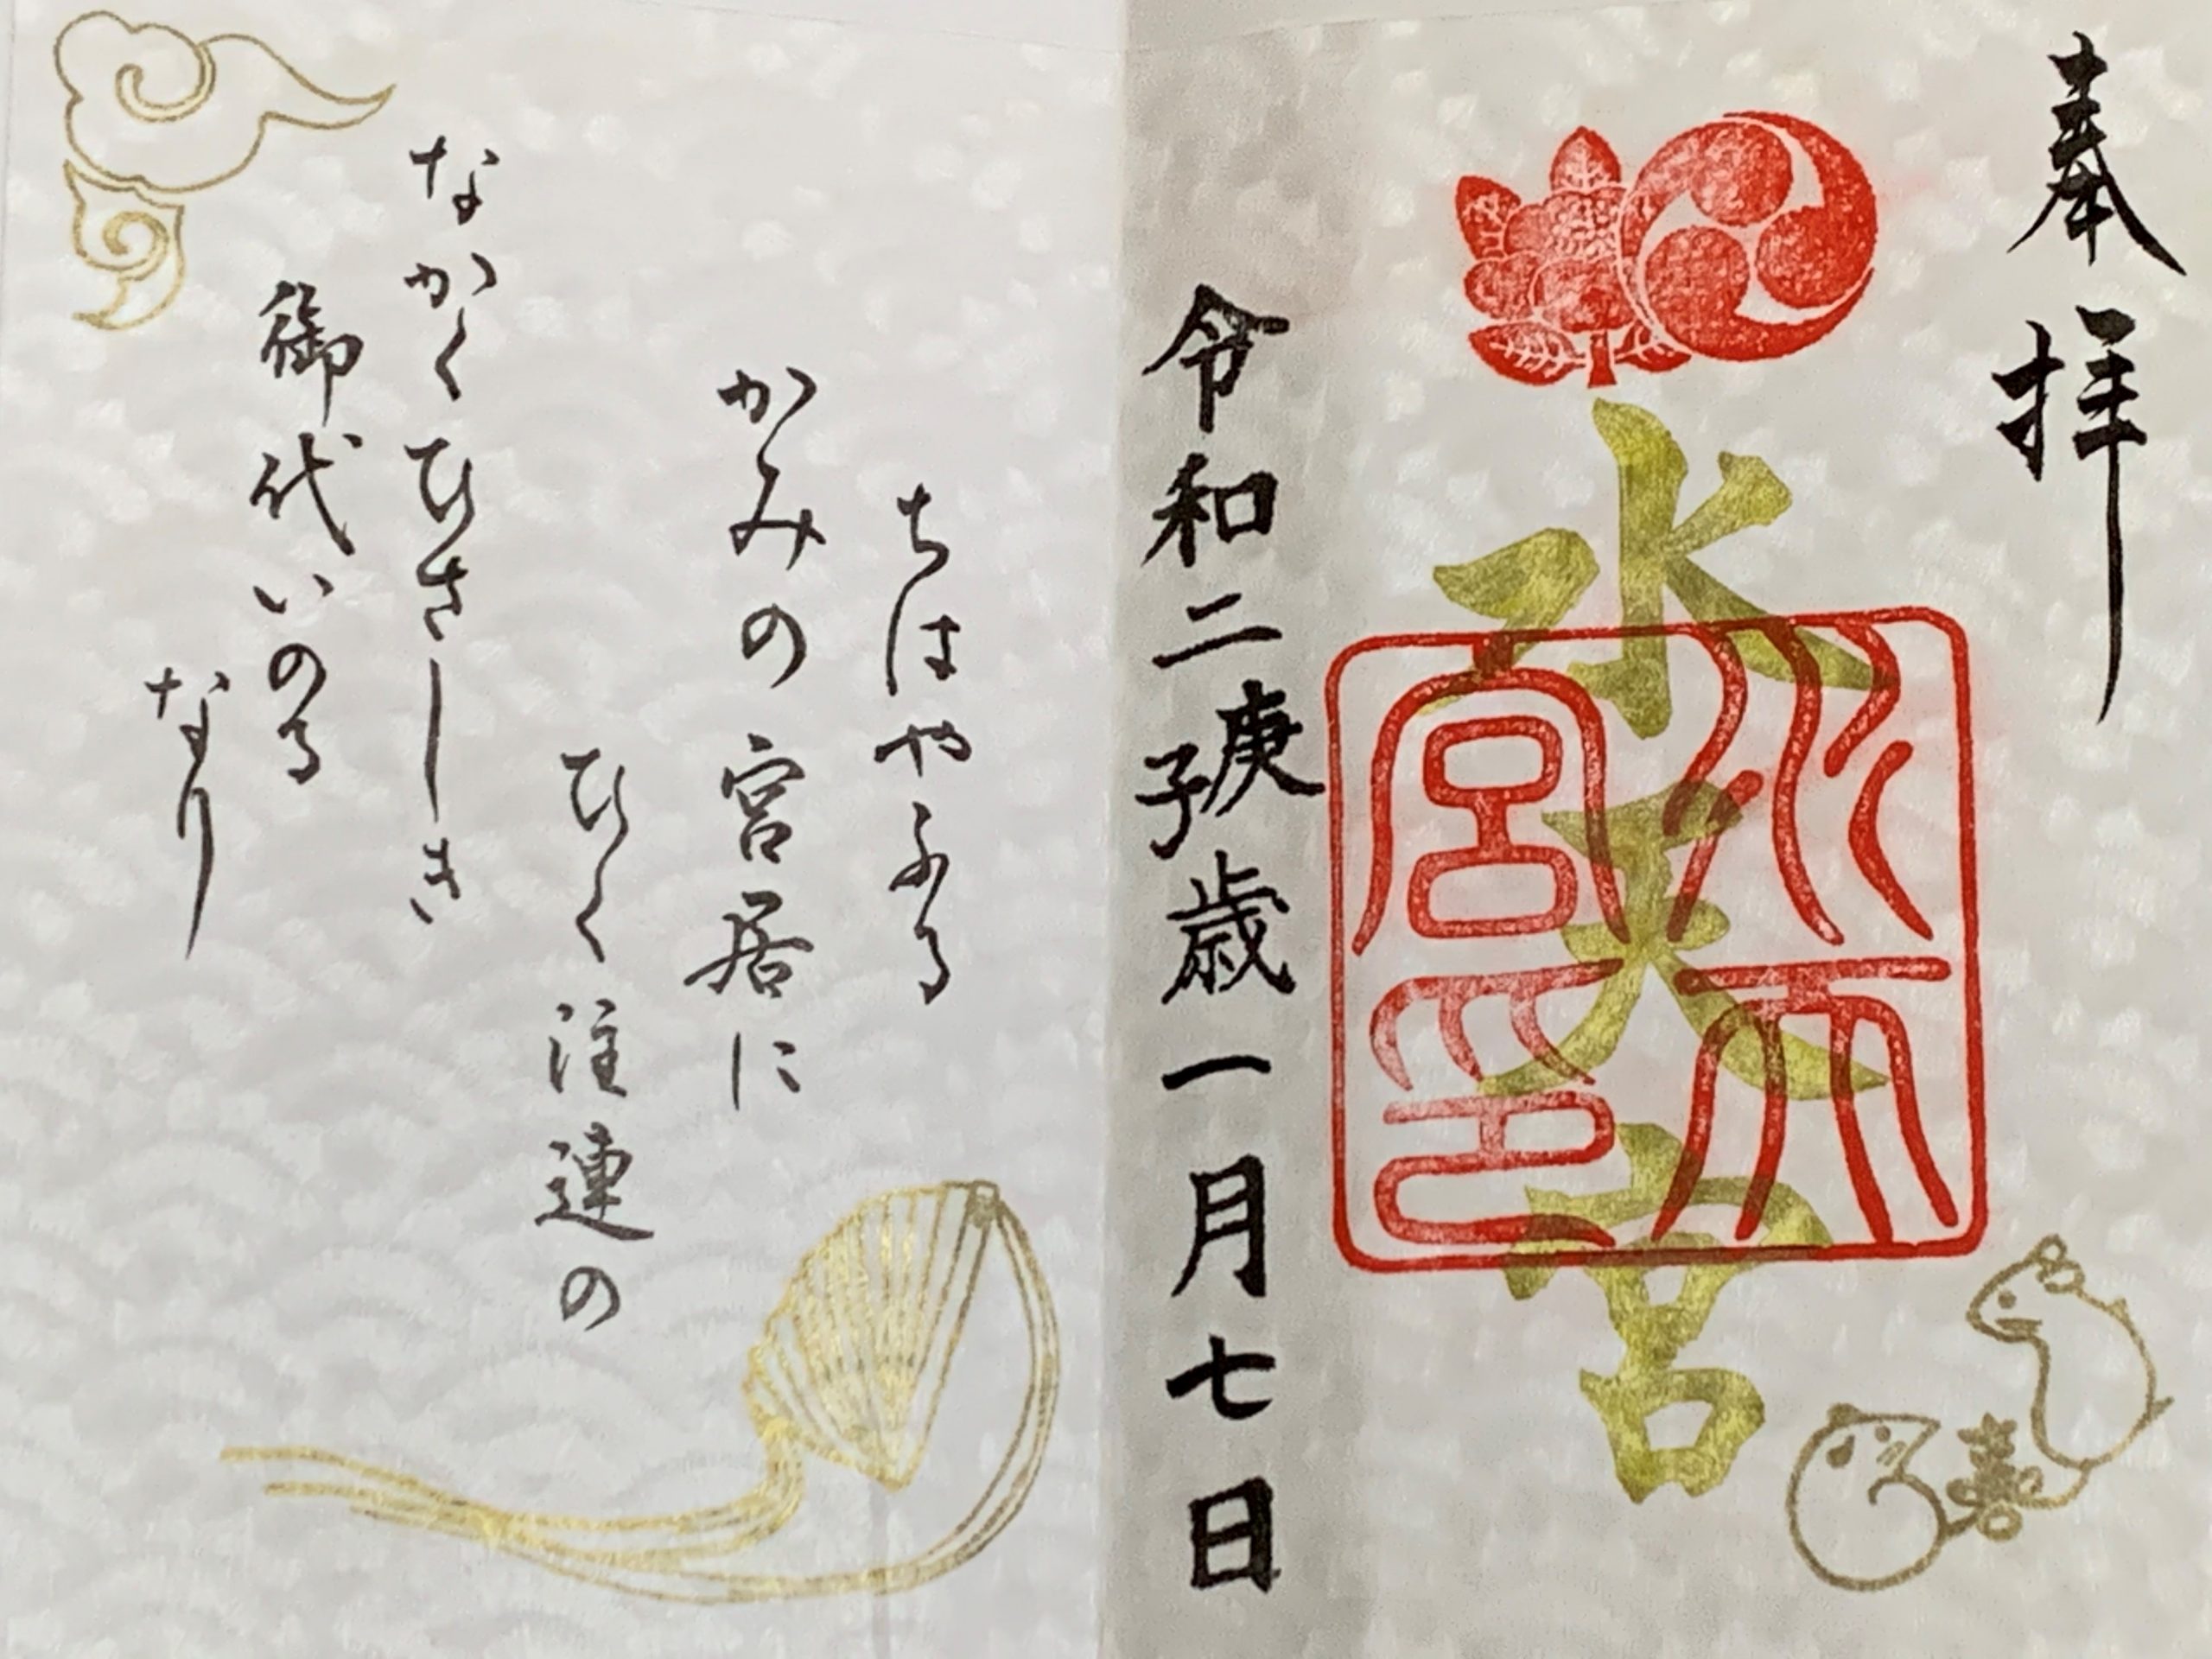 奉拝
水天宮
水天宮印
令和二庚子歳一月七日
ちはやふる
かみの宮居に
ひく注連の
なかくひさしき
御代いのる
なり